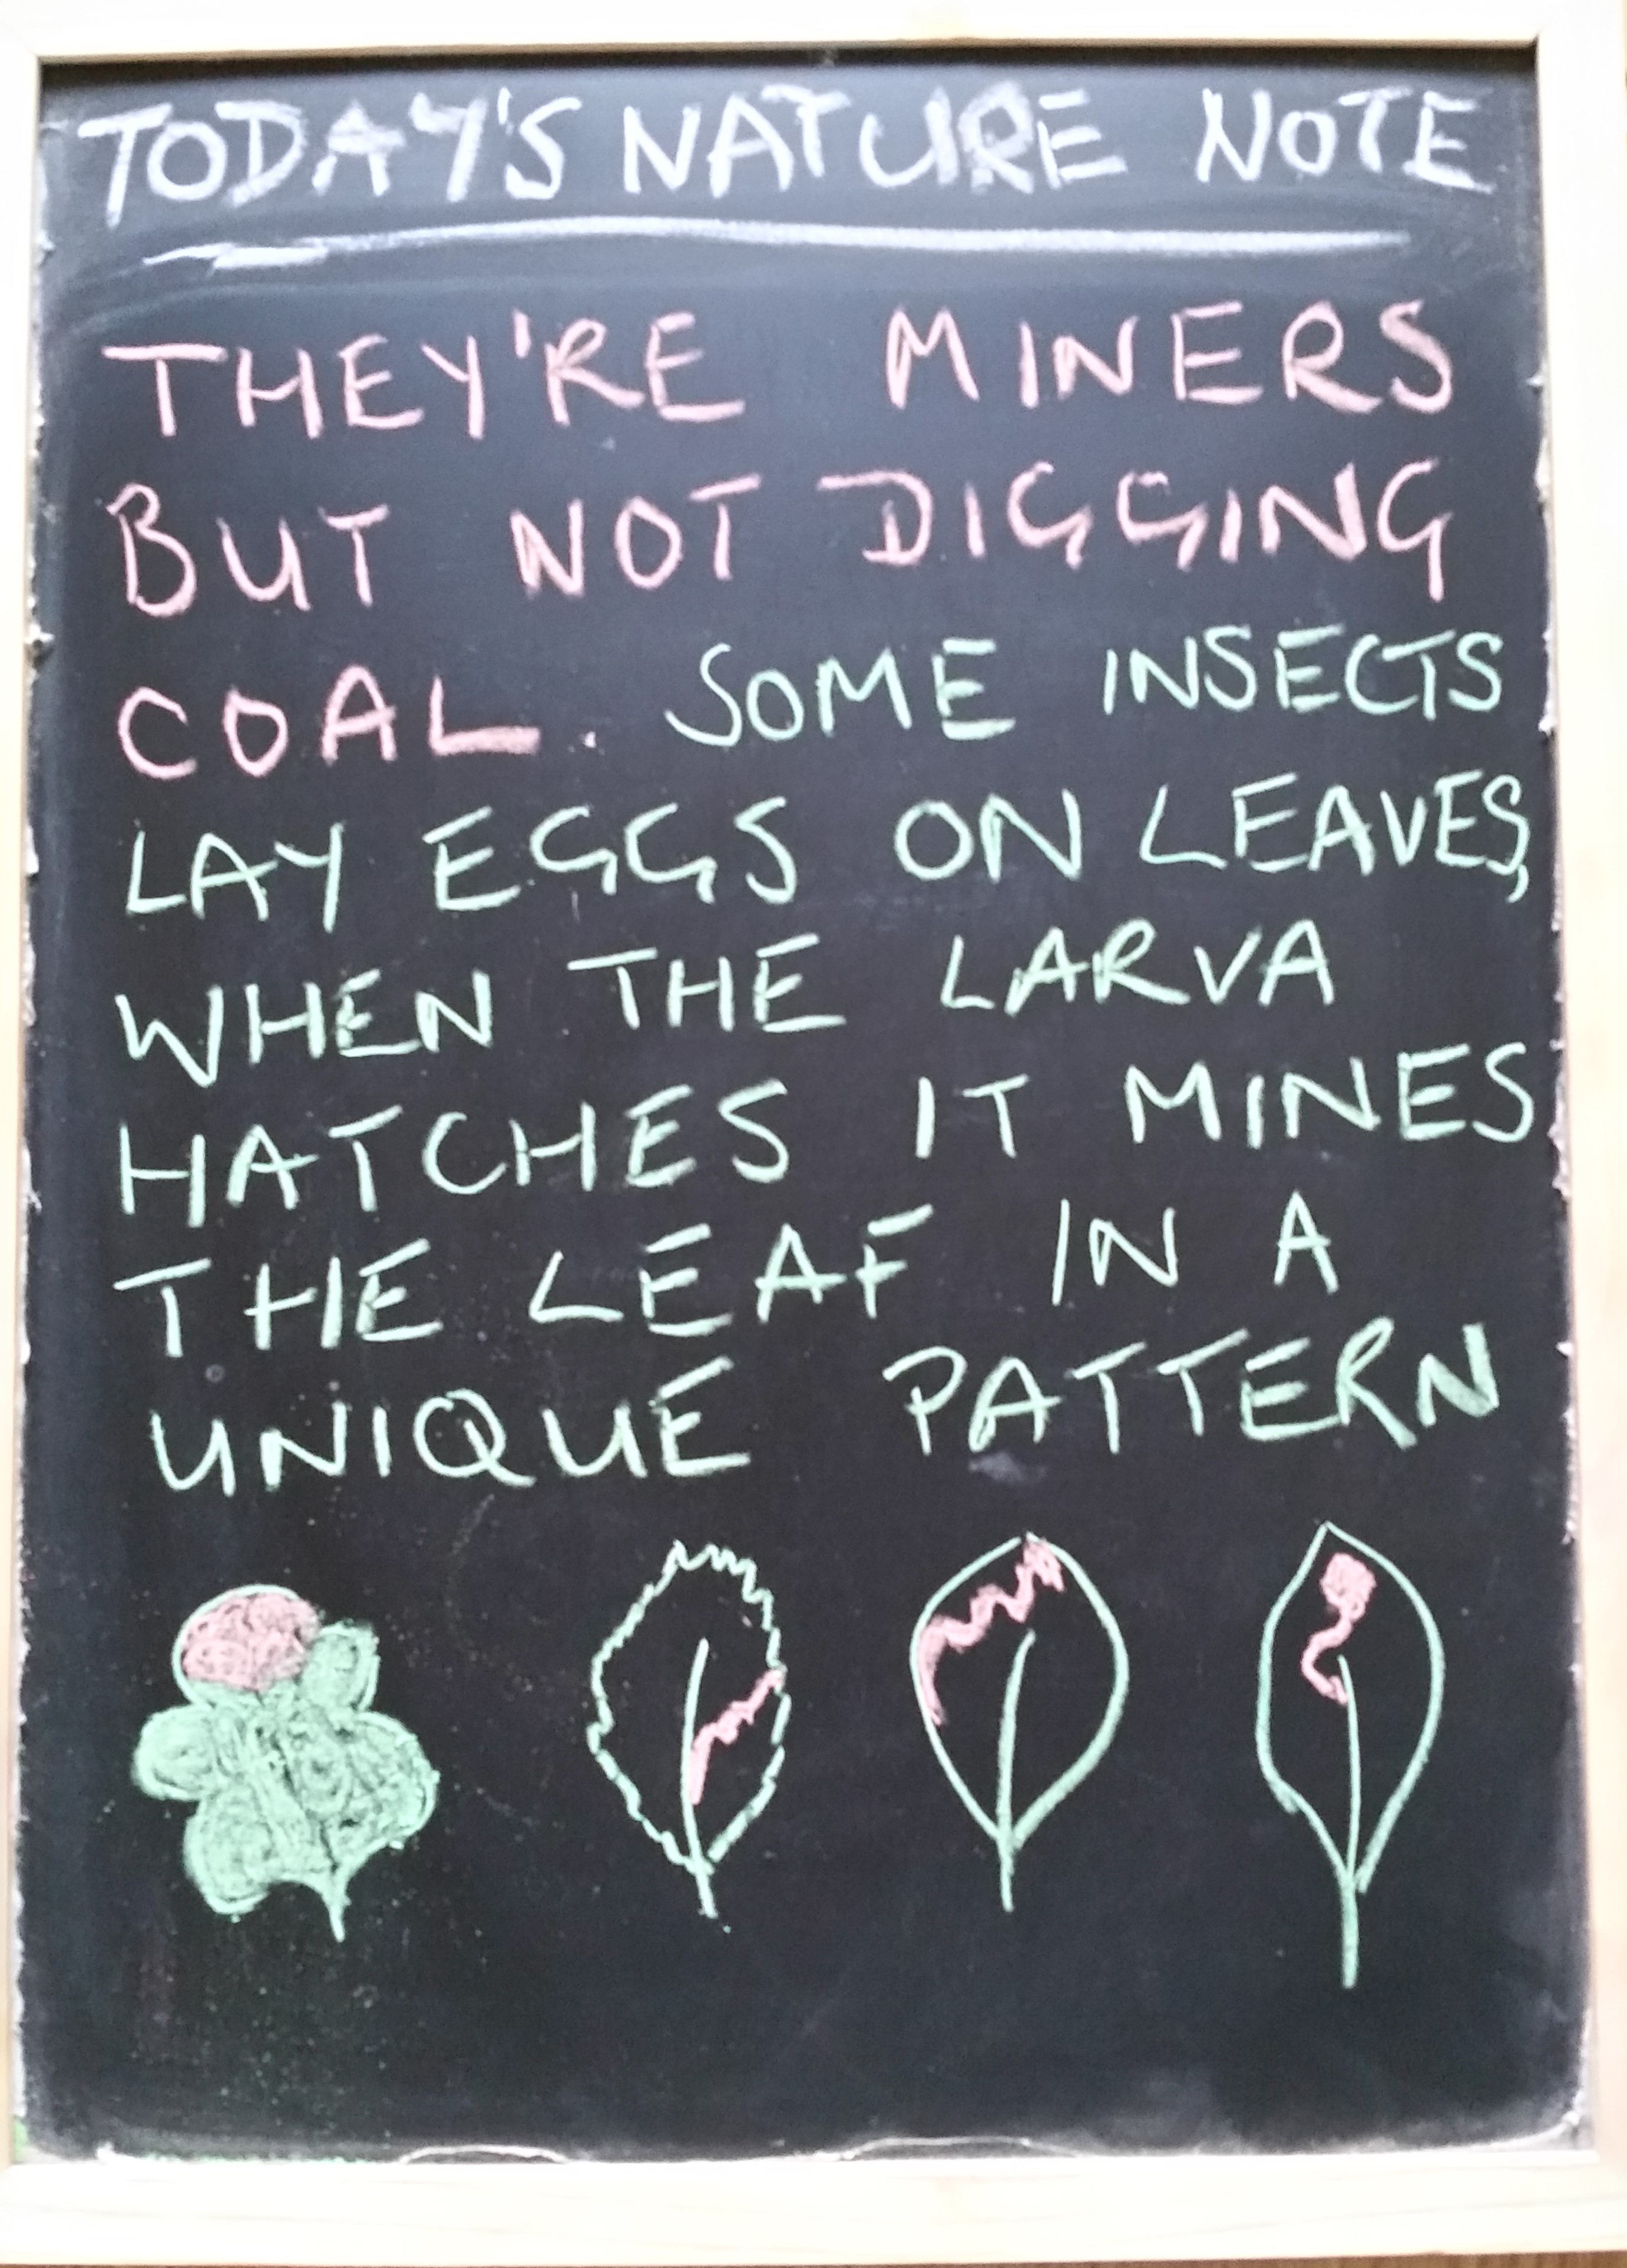 TODAY'S NATURE NOTE
THEY'RE MINERS
BUT NOT DIGGING
COAL. SOME INSECTS
LAY EGGS ON LEAVES,
WHEN THE LARVA
HATCHES IT MINES
THE LEAF IN A
UNIQUE PATTERN